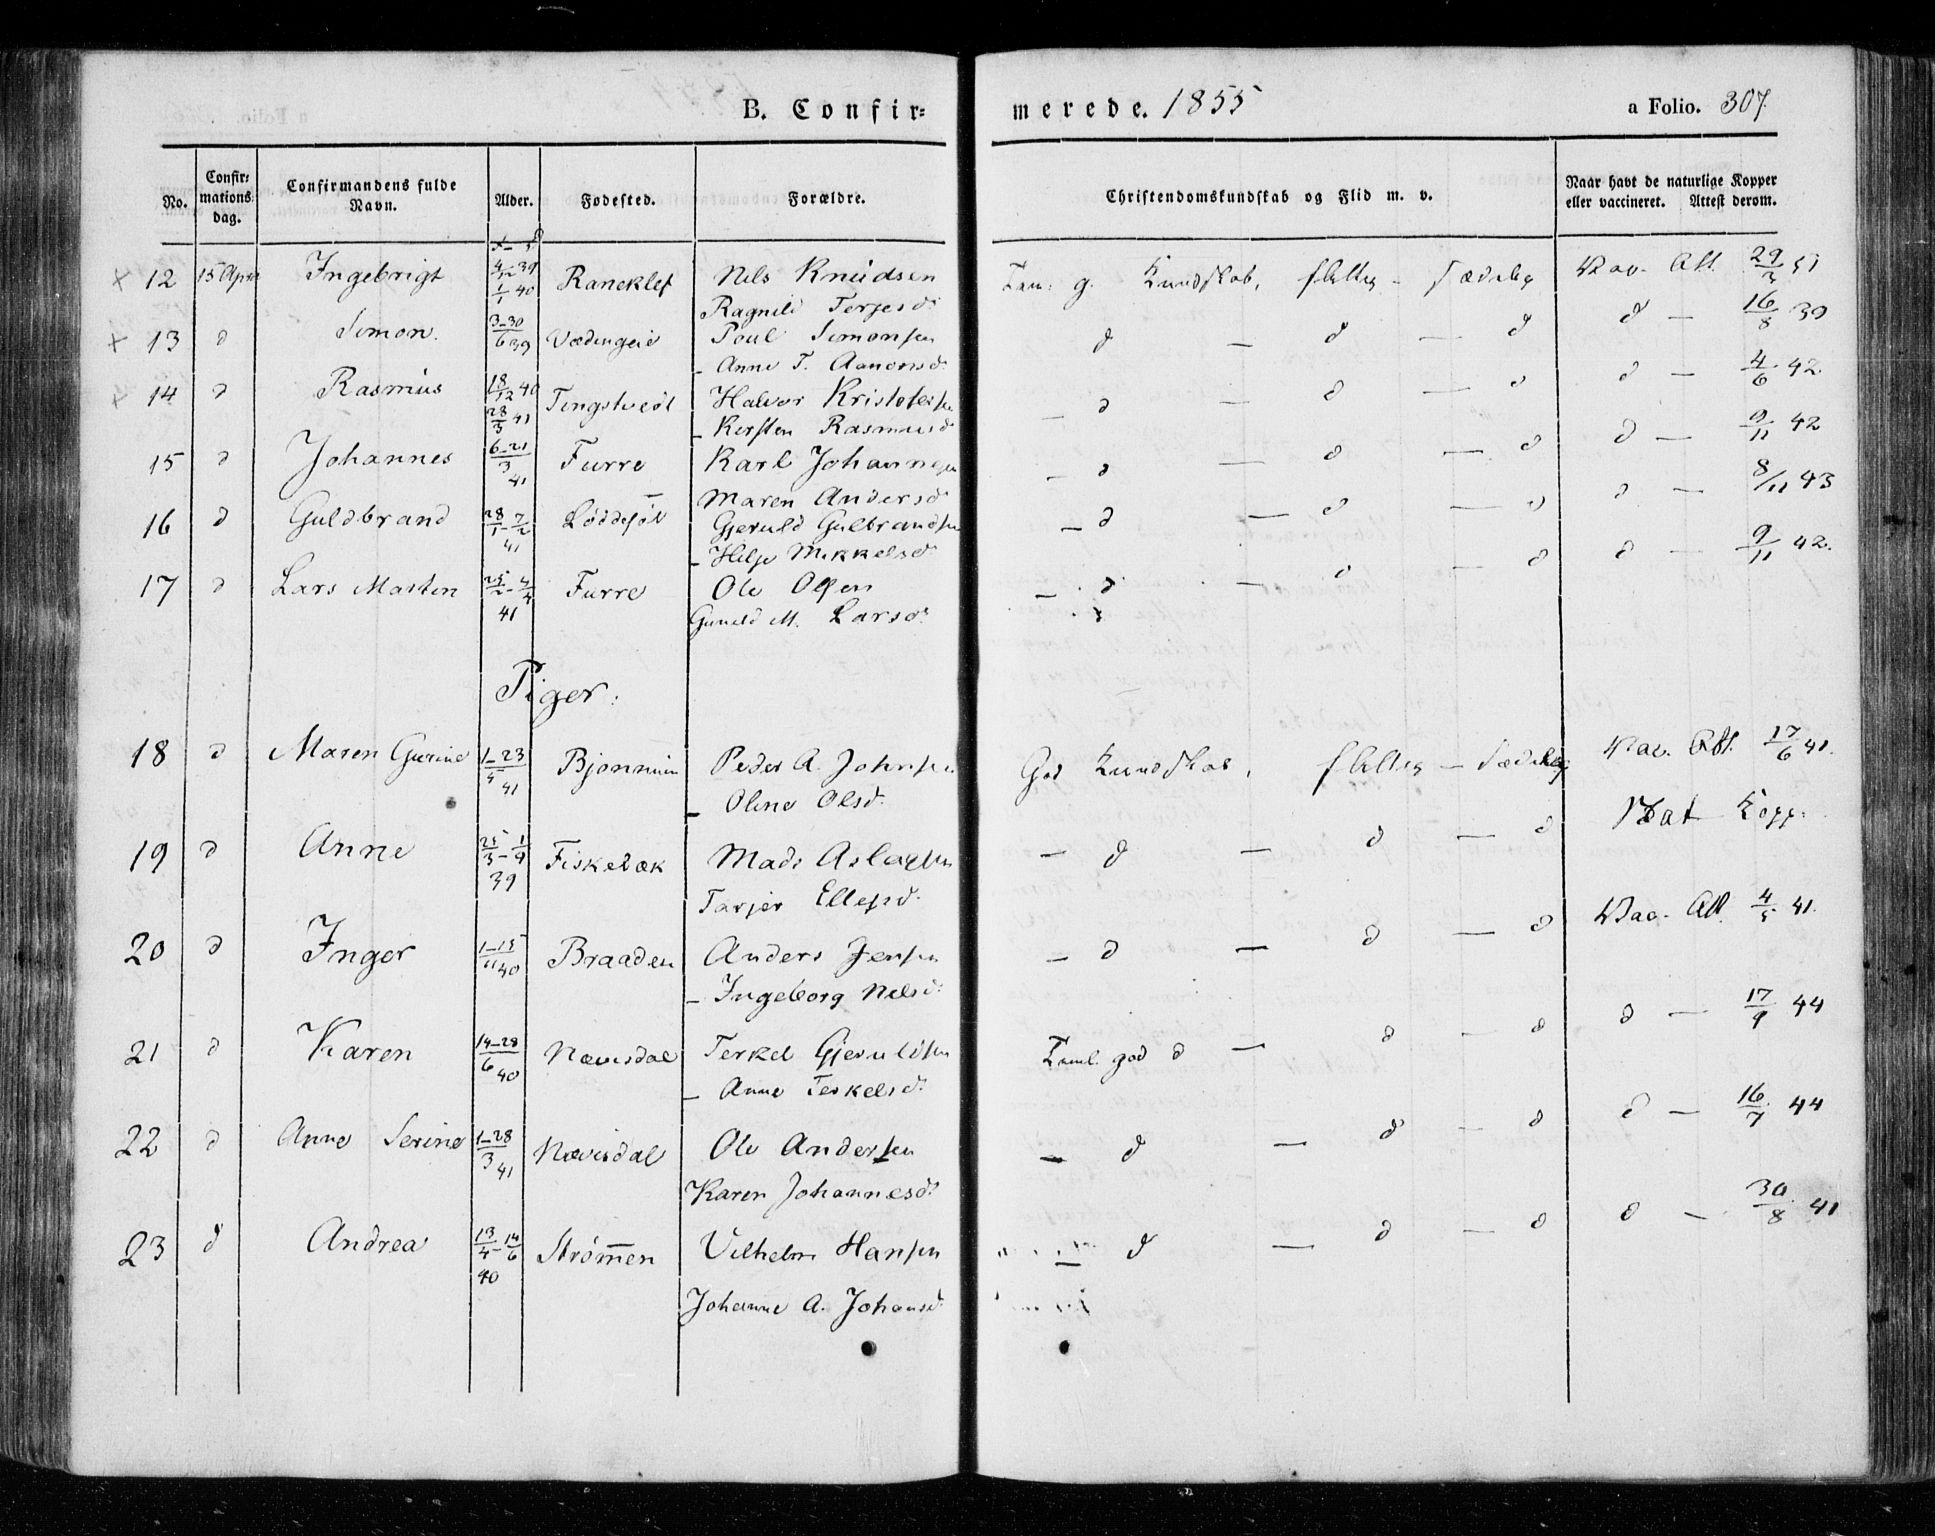 B. Confirmerede. 1855 a Folio. 307.
No. Confirmations dag. Confirmandens fulde Navn. Alder. Fødested. Forældre. Christendomskundskab og Flid m. v. Naar havt de naturlige Kopper eller vaccineret. Attest derom.
12 15 Apr Ingebrigt 39 1/1 40 Raneklef Nils Knudsen Kundskab, flittig - sædelig Vac. Att. 29/3 51
Ragnild Terjesd.
13 d Simon. 3-30/6 39 Poul Simonsen d — d — d d — 16/8 39
Anne T. Aanonsd.
14 d Rasmus 18/12 40 28/3 41 Tingstveøl Halvor Kristofersen — d — d — d d — 4/6 42
— Kirsten Rasmusd
15 d Johannes 6-21/3 41 Furre Karl Johannesen — d — d — d d — 9/11 42
Maren Andersd
16 d Guldbrand 28/1 - 7/2 41 Løddesøl Gjeruld Gulbrandsen — d — d — d d — 8/11 43
— Helje Mikkelsd
17 d Lars Marten 41 Furre Ole Olsen — d — d — d d — 9/11 42.
Guneld M. Larsd.
Piger:
18 d Maren Gurine 1-23/5 41 Peder A. Johnsen God Kundskab, flittig — sædelig Vac. Att. 17/6 41.
— Oline Olsd.
19 d Anne 25/3 - 1/9 39 Fiskebæk Mads Aslaksen — d — d — d Nat Kopp.
Tarjer Ellefsd.
20 d Inger 1-15/11 40 Braaden Anders Jensen — d — d — d Vac. Att. 4/5 41.
— Ingeborg Nelsd.
21 d Karen 14-28/6 40 Nævisdal Terkel Gjeruldsen Teml. god d — d — d d — 17/9 44
— Anne Terkelsd.
22 d Anne Serine 1-28/3 41 Nævisdal Ole Andersen — d — d — d d — 16/7 44
Karen Johannesd.
23 d Andrea 13/4 - 14/6 40 Strømmen Vilhelm Hansen — d — d — d d — 30/8 41
Johanne A. Johansd.